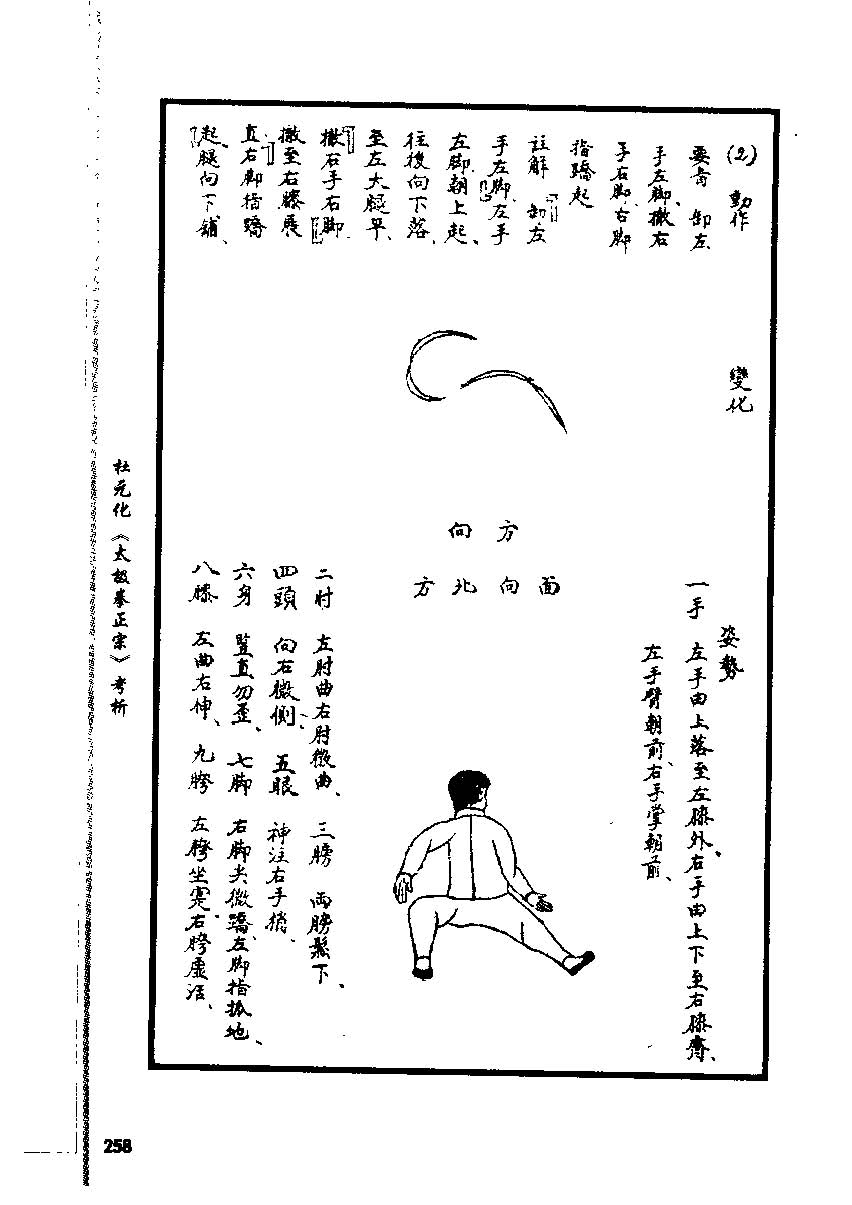 (2) 動作
要言 卸左
手左脚、撒右
手右脚、右脚
指蹻起
註解 『卸左
手左脚』左手
左脚朝上起、
往後向下落、
至左大腿平、
『撒右手右脚』
撒至右膝展
直『右脚指蹻
起』腿向下鋪、
變化
方向
面向北方
姿勢
一手 左手由上落至左膝外、右手由上下至右膝齊、
左手臂朝前、右手掌朝前、
二肘 左肘曲右肘微曲、三膀 兩膀鬆下、
四頭 向右微側、五眼 神注右手梢、
六身 豎直勿歪、七脚 右脚尖微蹻、左脚指抓地、
八膝 左曲右伸、九胯 左胯坐実、右胯虛活、
杜元化《太极拳正宗》考析
258